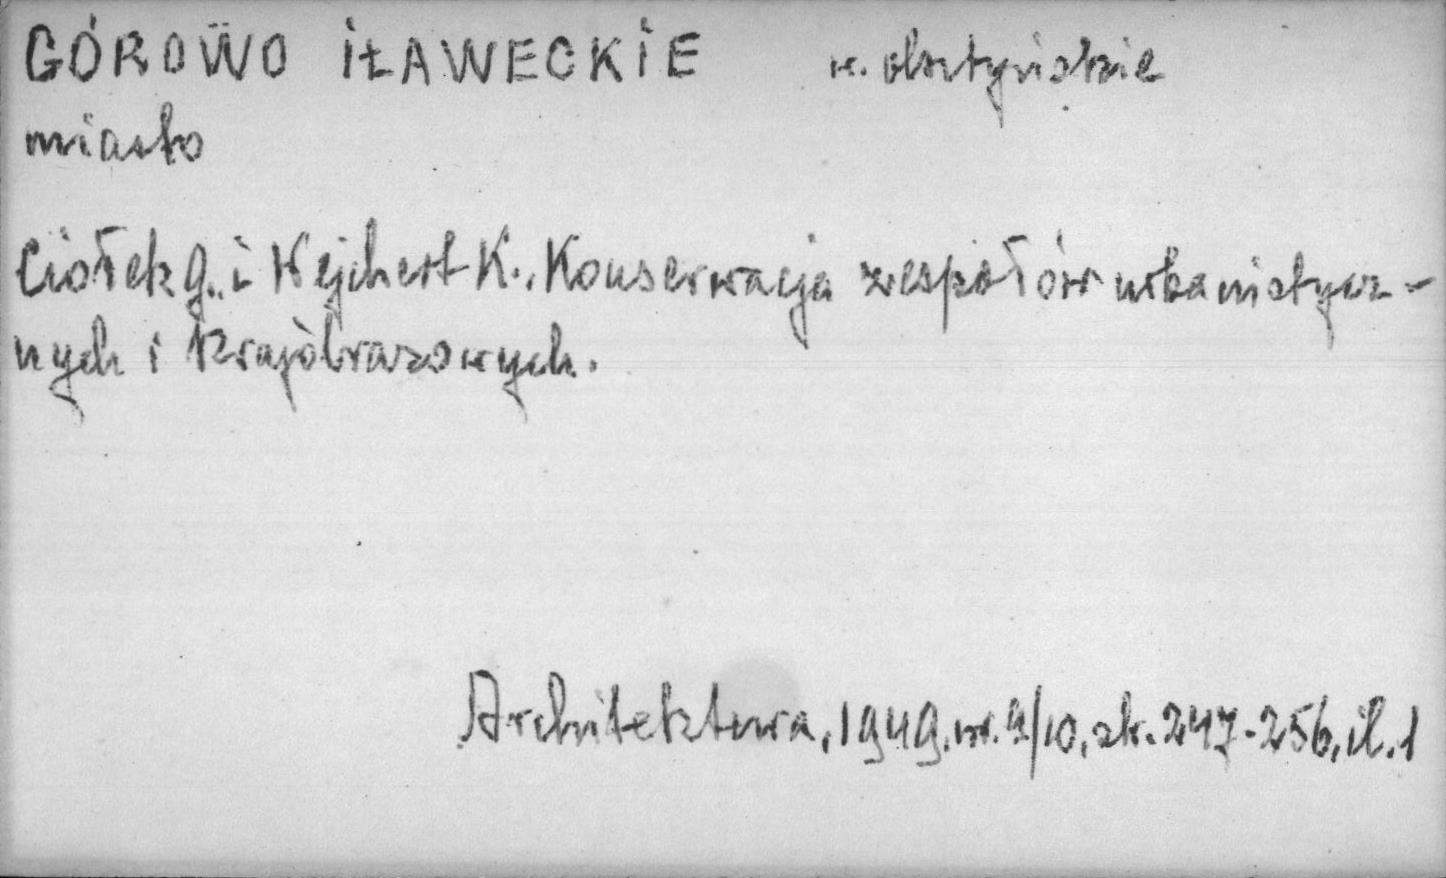 GÓROWO IŁAWECKIE w. olsztyńskie
miasto
Ciołek G. i Wejchert K., Konserwacja zespołów urbanistycz-
nych i krajobrazowych.
Architektura, 1949, nr. 9/10, str. 247-256, il. 1